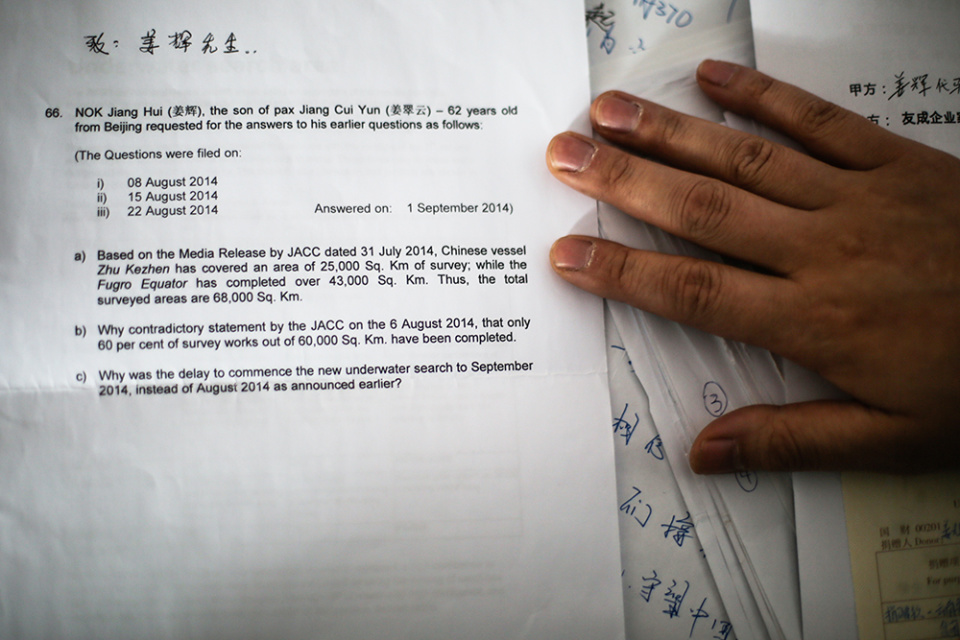 致：姜辉先生..
66. NOK Jiang Hui (姜辉), the son of pax Jiang Cui Yun (姜翠云) – 62 years old
from Beijing requested for the answers to his earlier questions as follows:
(The Questions were filed on:
i) 08 August 2014
ii) 15 August 2014
iii) 22 August 2014 Answered on: 1 September 2014)
a) Based on the Media Release by JACC dated 31 July 2014, Chinese vessel
Zhu Kezhen has covered an area of 25,000 Sq. Km of survey; while the
Fugro Equator has completed over 43,000 Sq. Km. Thus, the total
surveyed areas are 68,000 Sq. Km.
b) Why contradictory statement by the JACC on the 6 August 2014, that only
60 per cent of survey works out of 60,000 Sq. Km. have been completed.
c) Why was the delay to commence the new underwater search to September
2014, instead of August 2014 as announced earlier?
370
甲方：姜辉
方： 友成企业
③
④
相信
们
守望中国
捐赠人 Donor